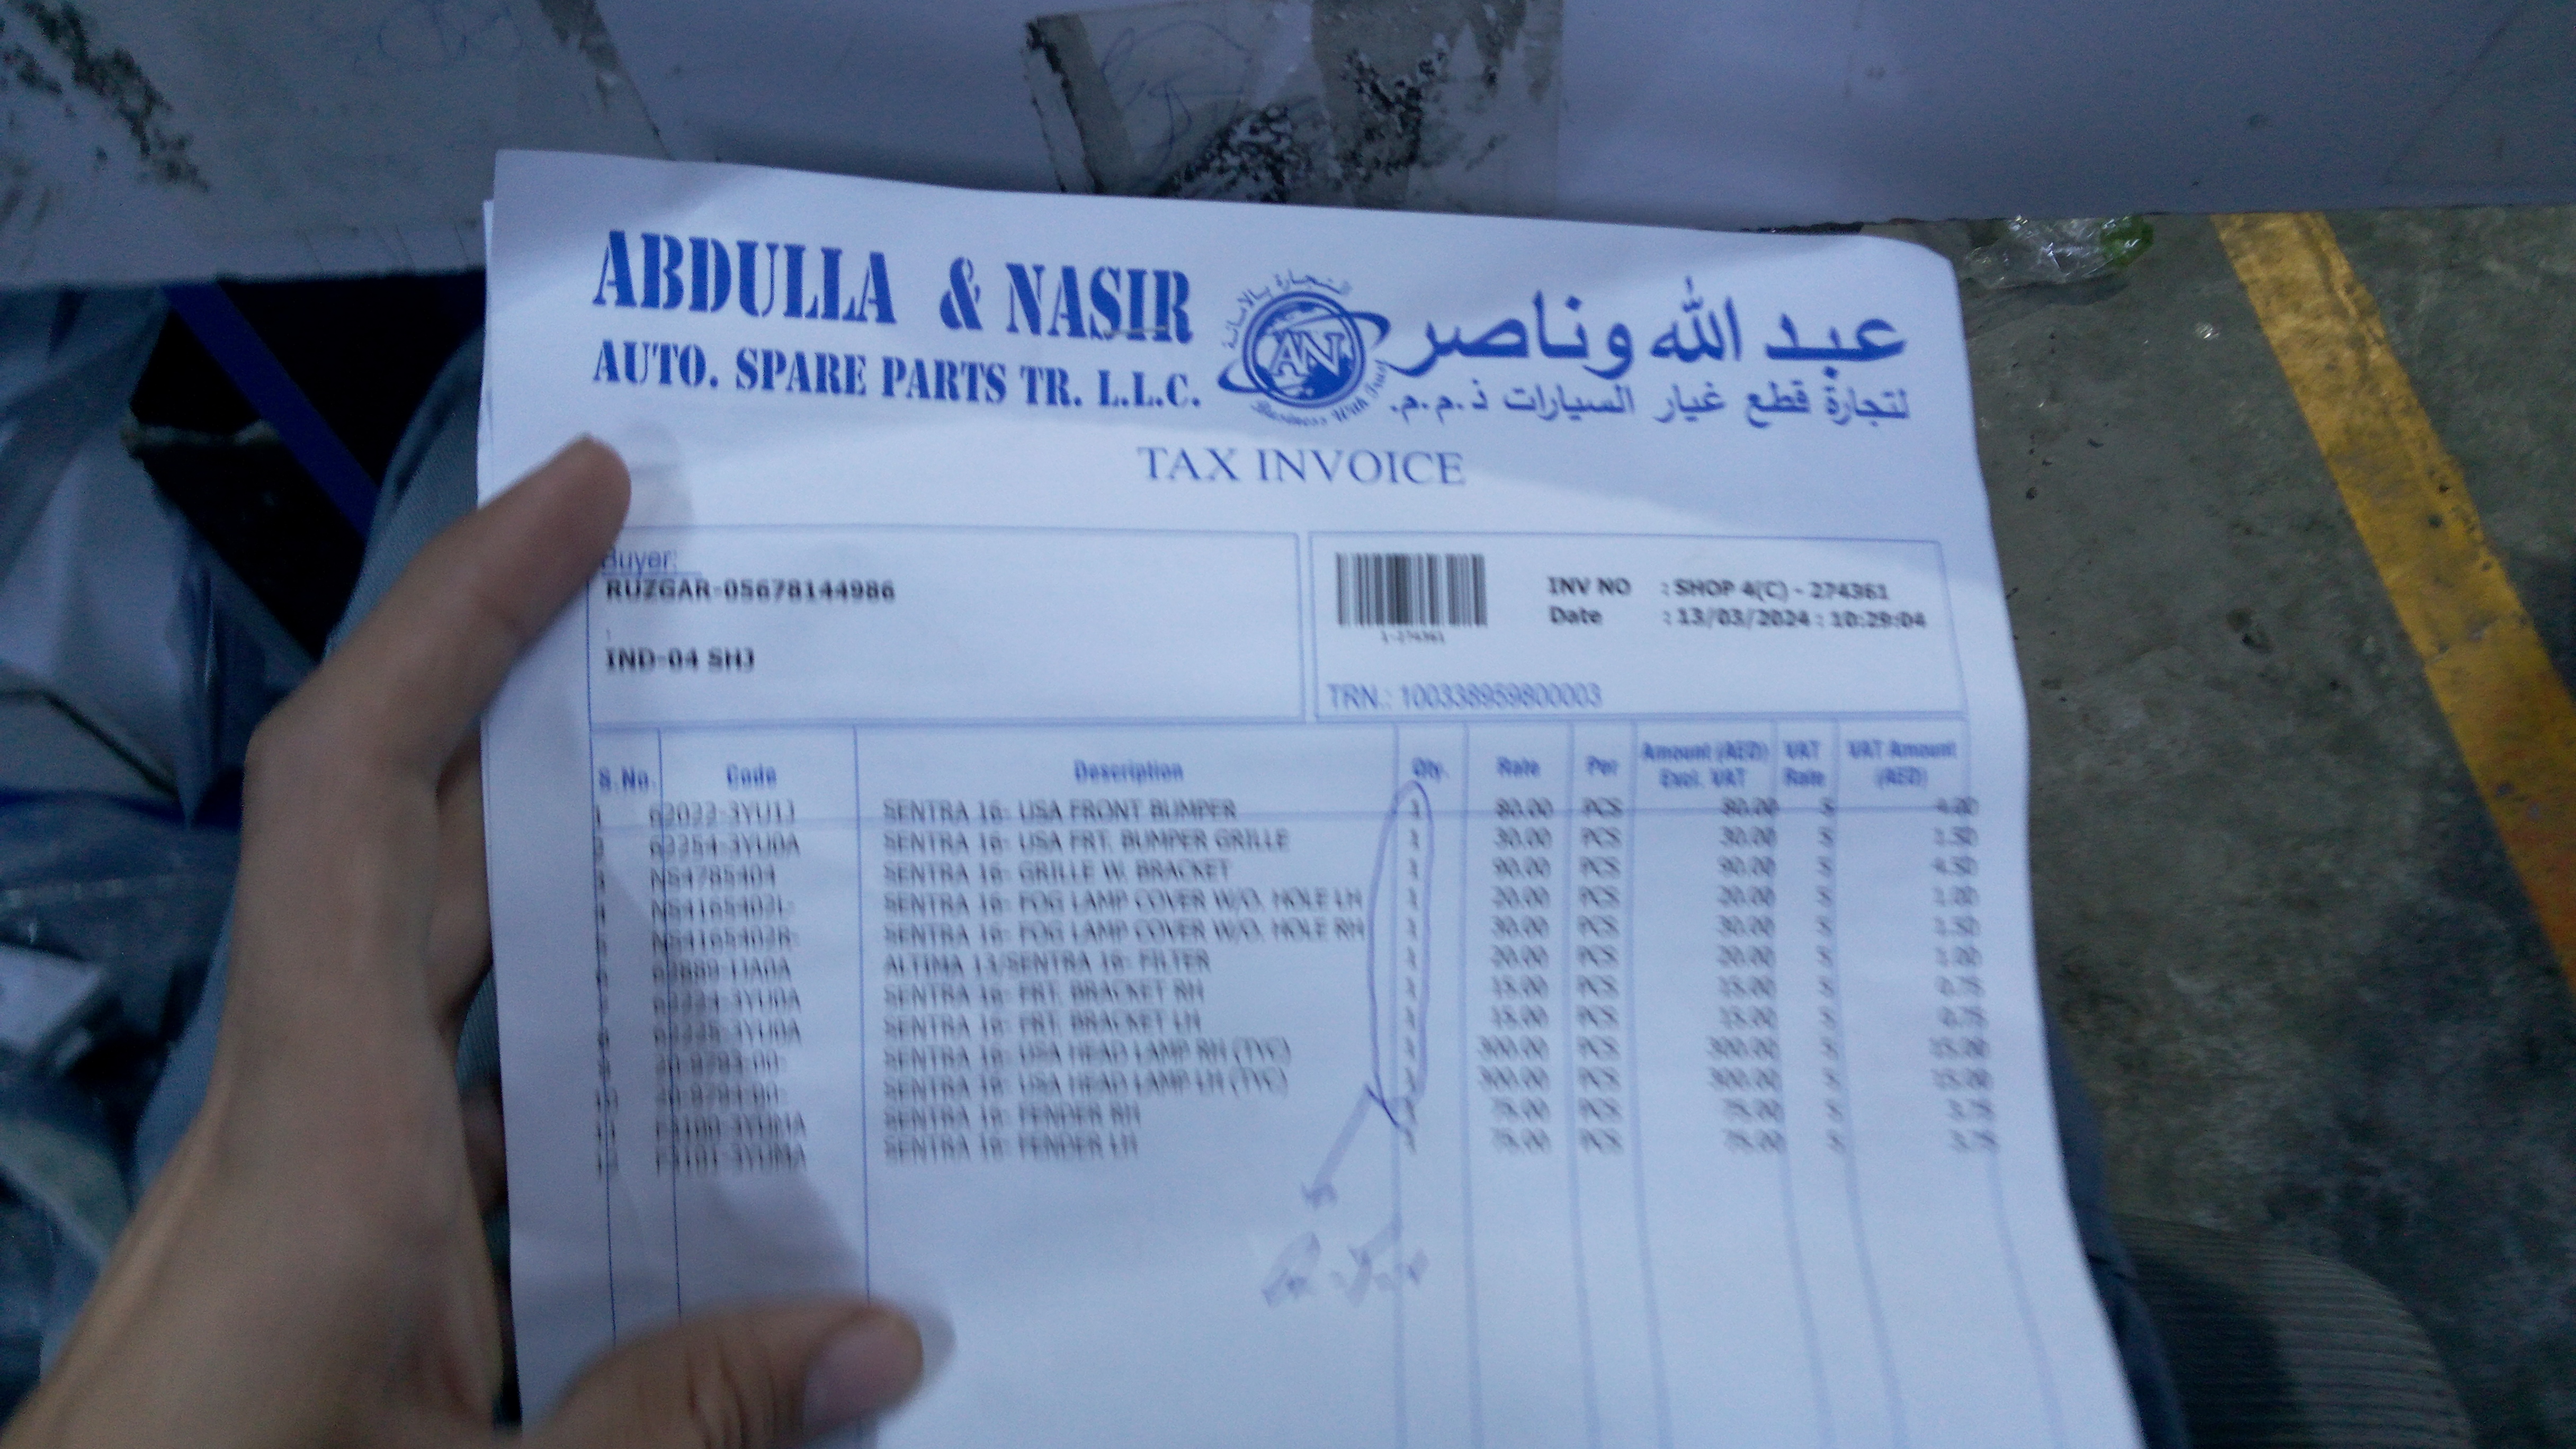 ABDULLA & NASIR
AUTO. SPARE PARTS TR. L.L.C.
التجارة بالامانة
AN
Business With Trust
عبد الله وناصر
لتجارة قطع غيار السيارات ذ.م.م.
TAX INVOICE
Buyer:
RUZGAR-05678144986
:
IND-04 SHJ
INV NO : SHOP 4(C) - 274361
Date : 13/03/2024 : 10:29:04
1-274361
TRN.: 100338959800003
S.No. Code Description Qty. Rate Per Amount (AED) Excl. VAT VAT Rate VAT Amount (AED)
1 62022-3YU1J SENTRA 16- USA FRONT BUMPER 1 80.00 PCS 80.00 5 4.00
2 62254-3YU0A SENTRA 16- USA FRT. BUMPER GRILLE 1 30.00 PCS 30.00 5 1.50
3 NS4785404 SENTRA 16- GRILLE W. BRACKET 1 90.00 PCS 90.00 5 4.50
4 SENTRA 16- FOG LAMP COVER W/O. HOLE LH 1 20.00 PCS 20.00 5 1.00
5 SENTRA 16- FOG LAMP COVER W/O. HOLE RH 1 30.00 PCS 30.00 5 1.50
6 ALTIMA 13/SENTRA 16- FILTER 1 20.00 PCS 20.00 5 1.00
7 SENTRA 16- FRT. BRACKET RH 1 15.00 PCS 15.00 5 0.75
8 SENTRA 16- FRT. BRACKET LH 1 15.00 PCS 15.00 5 0.75
9 SENTRA 16- USA HEAD LAMP RH (TYC) 1 300.00 PCS 300.00 5 15.00
10 SENTRA 16- USA HEAD LAMP LH (TYC) 1 300.00 PCS 300.00 5 15.00
11 SENTRA 16- FENDER RH 1 75.00 PCS 75.00 5 3.75
12 SENTRA 16- FENDER LH 1 75.00 PCS 75.00 5 3.75